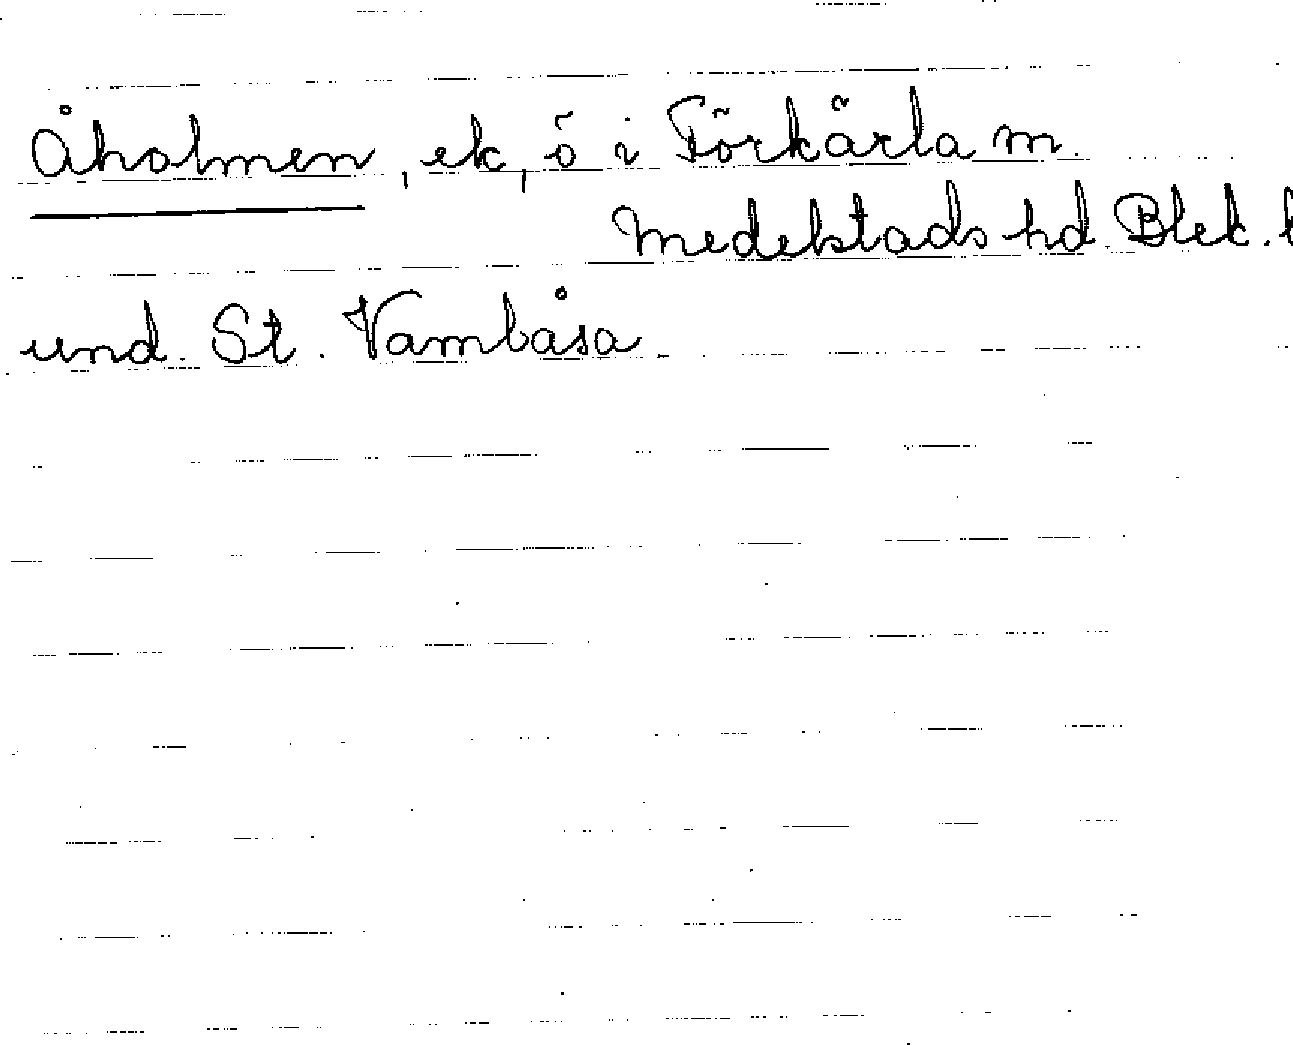 Åholmen, ek, ö i Förkärla m.
Medelstads hd. Blek. l
und. St. Vambåsa